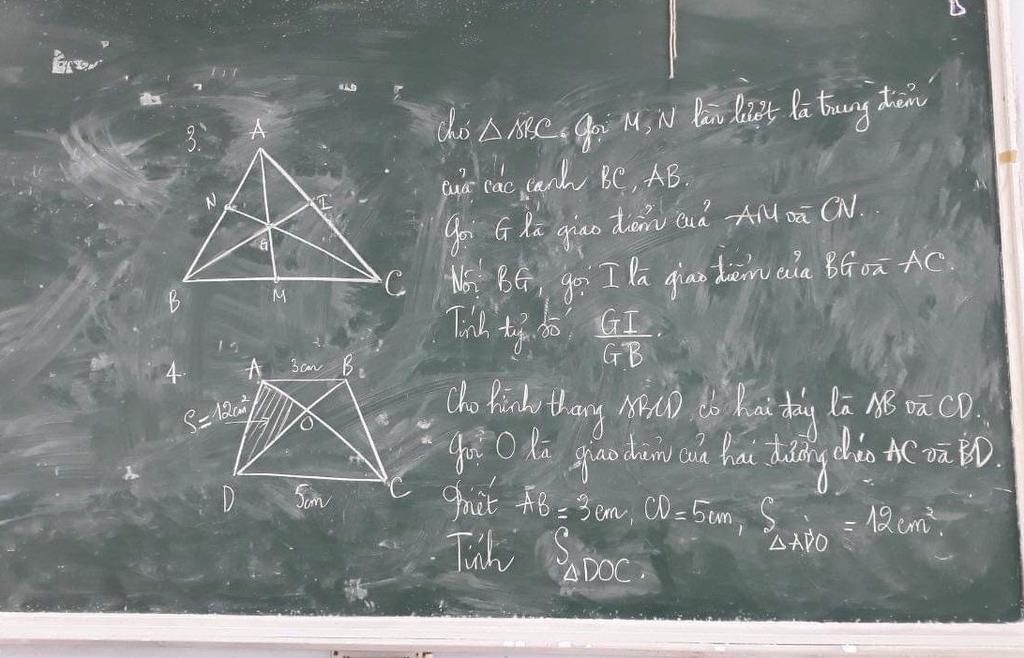 3.
A
N
I
G
B
M
C
Cho △ABC. Gọi M, N lần lượt là trung điểm
của các cạnh BC, AB.
Gọi G là giao điểm của AM và CN.
Nối BG, gọi I là giao điểm của BG và AC.
Tính tỷ số GI
GB
4.
A 3cm B
S=12cm²
O
D
5cm
C
Cho hình thang ABCD có hai đáy là AB và CD.
Gọi O là giao điểm của hai đường chéo AC và BD.
Biết AB = 3cm, CD = 5cm, S△ADO = 12cm².
Tính S△DOC.